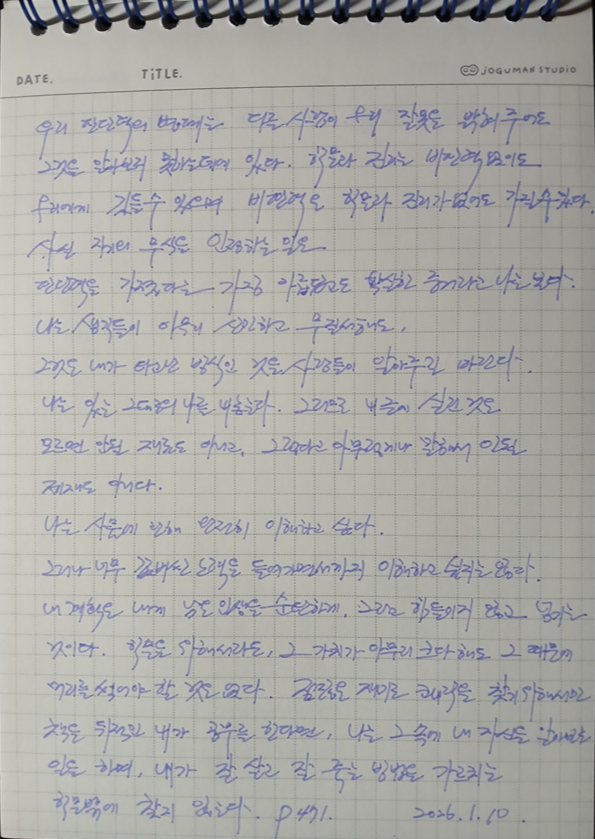 DATE.
TiTLE.
JOGUMAN STUDIO
우리 판단력의 병폐는 다른 사람이 우리 잘못을 밝혀 주어도
그것을 알아보지 못하는데에 있다. 학문과 진리는 비판력 없이도
우리에게 깃들 수 있으며 비판력은 학문과 진리가 없어도 가질 수 있다.
사실 자기의 무식을 인정하는 일은
판단력을 가졌다는 가장 아름답고도 확실한 증거라고 나는 본다.
나는 생각들이 아무리 산만하고 무질서해도,
그것도 내가 타고난 방식인 것을 사람들이 알아주길 바란다.
나는 있는 그대로의 나를 내놓는다. 그러므로 내 글에 실린 것은
모르면 안될 재료도 아니고, 그렇다고 아무렇게나 말해서 안될
제재도 아니다.
나는 사물에 관해 완전히 이해하고 싶다.
그러나 너무 값비싼 노력을 들여가면서까지 이해하고 싶지는 않다.
내 계획은 내게 남은 인생을 순탄하게, 그리고 힘들이지 않고 넘기는
것이다. 학문을 위해서라도, 그 가치가 아무리 크다 해도 그 때문에
머리를 썩여야 할 것은 없다. 재미로 찾기 위해서만
책을 뒤적인 내가 공부를 한다면, 나는 그 속에 내 자신을 알아보는
일을 하며, 내가 잘 살고 잘 죽는 방법을 가르치는
학문밖에 찾지 않는다. P471. 2026.1.10.